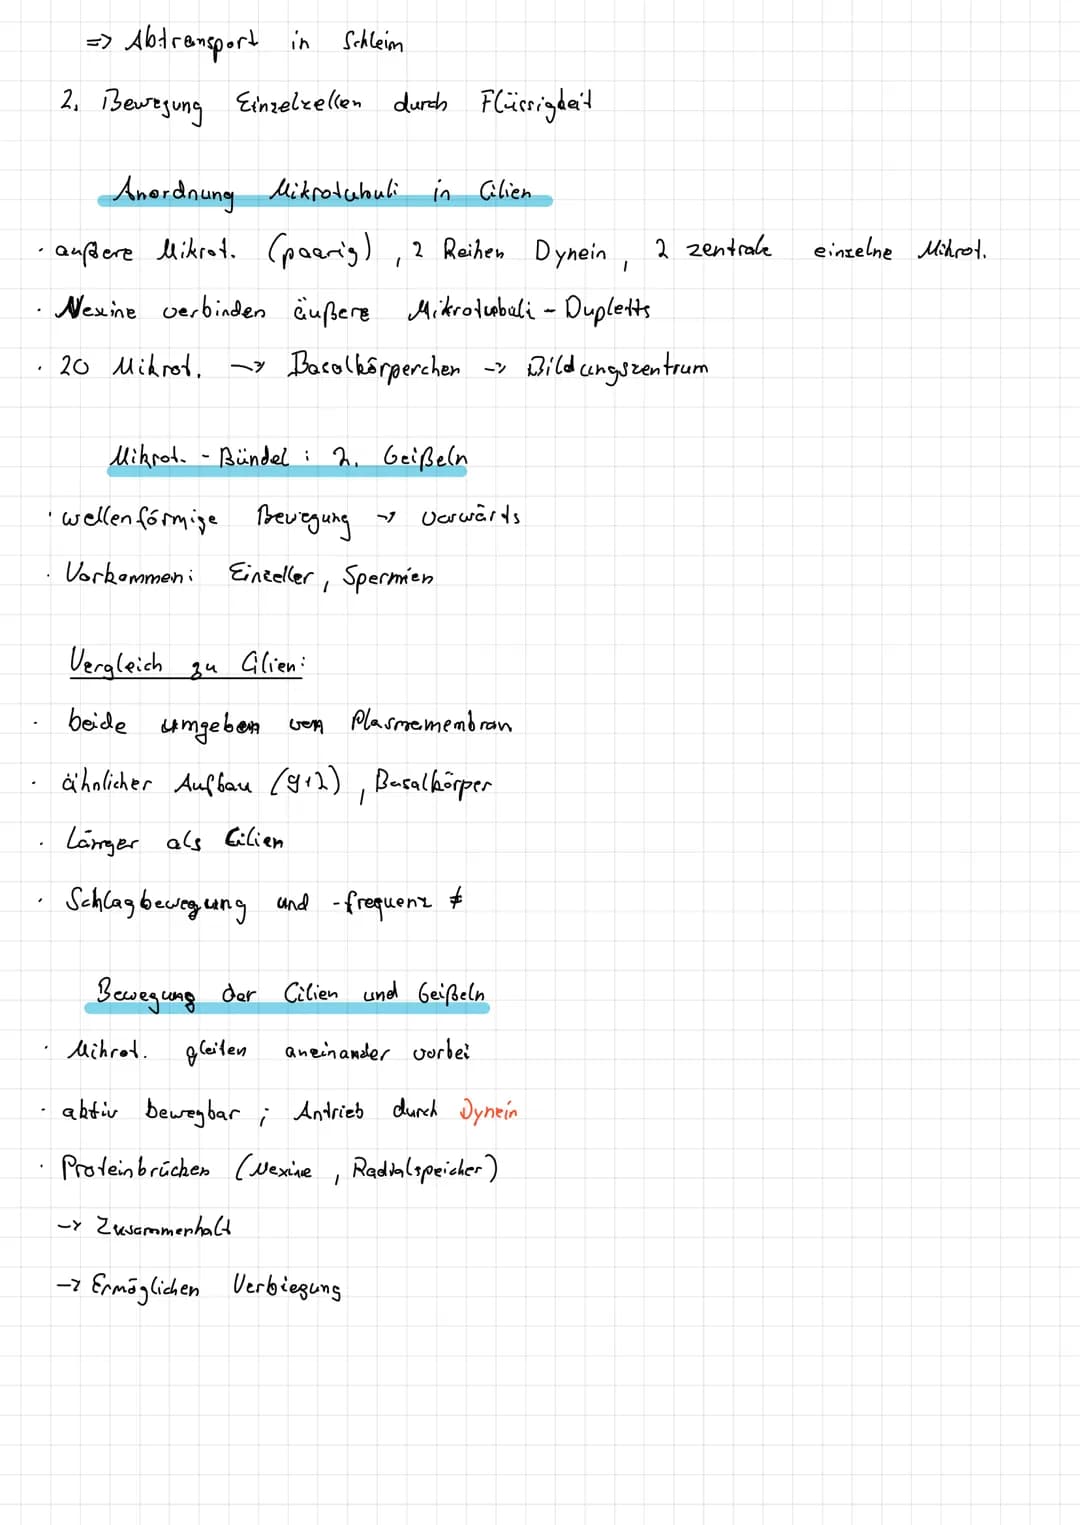 => Abtransport in Schleim
2. Bewegung Einzelzellen durch Flüssigkeit
Anordnung Mikrotubuli in Cilien
· äußere Mikrot. (paarig), 2 Reihen Dynein, 2 zentrale einzelne Mikrot.
· Nexine verbinden äußere Mikrotubuli - Dupletts
· 20 Mikrot. -> Basalkörperchen -> Bildungszentrum
Mikrot. - Bündel : 2. Geißeln
· wellenförmige Bewegung -> Vorwärts
· Vorkommen: Einzeller, Spermien
Vergleich zu Cilien:
· beide umgeben von Plasmamembran
· ähnlicher Aufbau (9+2), Basalkörper
· Länger als Cilien
· Schlagbewegung und -frequenz ≠
Bewegung der Cilien und Geißeln
· Mikrot. gleiten aneinander vorbei
· aktiv bewegbar ; Antrieb durch Dynein
· Proteinbrücken (Nexine, Radialspeicher)
-> Zusammenhalt
-> Ermöglichen Verbiegung